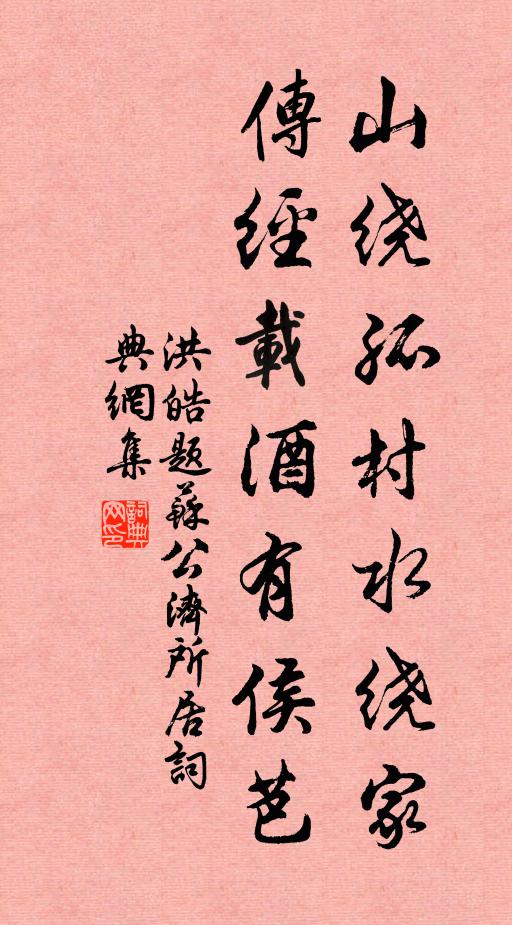 山绕孤村水绕家
傳經載酒有侯芭
洪皓题蘇公濟所居詞
典網集
詞典
网印